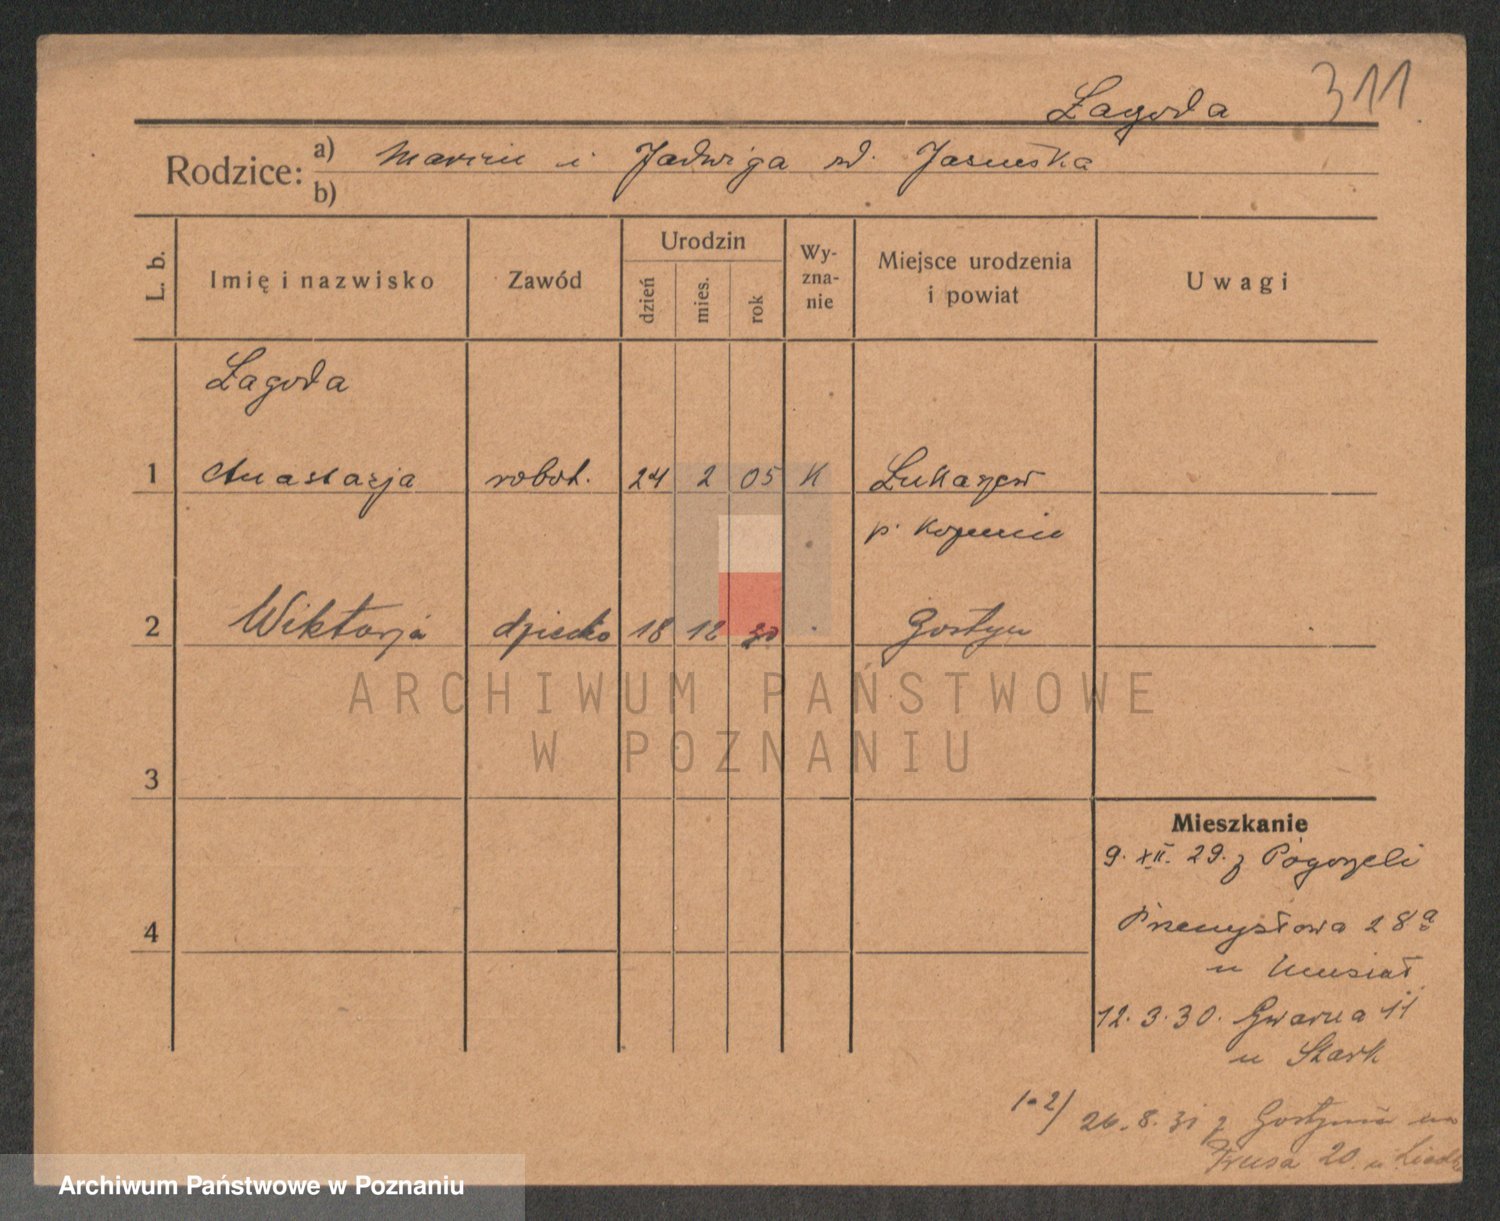 311
Łagoda
Rodzice: a) Marcin i Jadwiga zd. Jasińska
b)
L. b. Imię i nazwisko Zawód Urodzin dzień mies. rok Wyznanie Miejsce urodzenia i powiat Uwagi
Łagoda
1 Anastazja robot. 24 2 05 K Łukaszew
p. Koźmin
2 Wiktorja dziecko 18 12 30 Gostyń
ARCHIWUM PAŃSTWOWE
W POZNANIU
3
Mieszkanie
9. XII. 29. z Pogorzeli
4
Przemysłowa 28a
u Musiał
12. 3. 30. Gwarna 11
u Stark
1-2) 26. 8. 31 z Gostynia na
Prusa 20 u
Archiwum Państwowe w Poznaniu